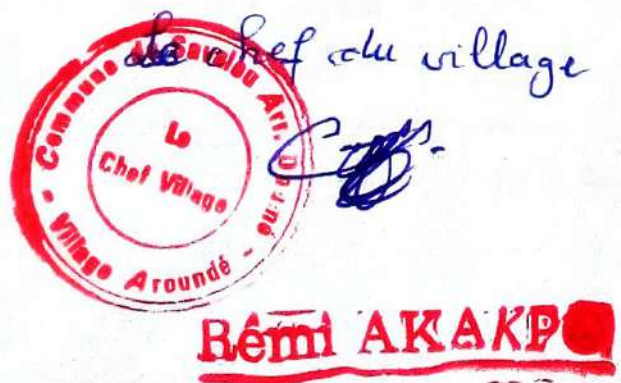 Le chef du village
Commune de Savalou Arr. Ouèssè
Le
Chef Village
- Village Aroundé -
Rémi AKAKPO